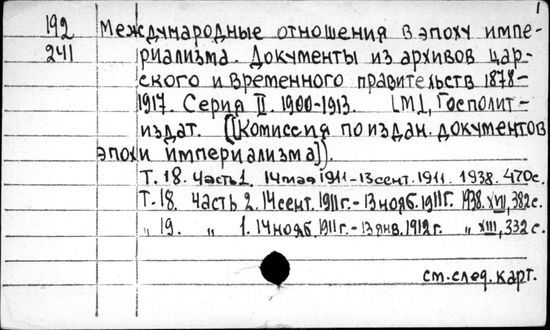 1
192 Международные отношения в эпоху импе-
241 риализма. Документы из архивов цар-
ского и временного правительств 1878-
1917. Серия II. 1900-1913. [М], Госполит-
издат. ([Комиссия по издан. документов
эпохи империализма]).
Т. 18. Часть 1. 14 мая 1911-13 сент. 1911. 1938. 470с.
Т. 18. Часть 2. 14 сент. 1911г.-13 нояб. 1911г. 1938. XVII, 382с.
„ 19. „ 1. 14 нояб. 1911г.-13 янв. 1912г. „ XIII, 332с.
см. след. карт.